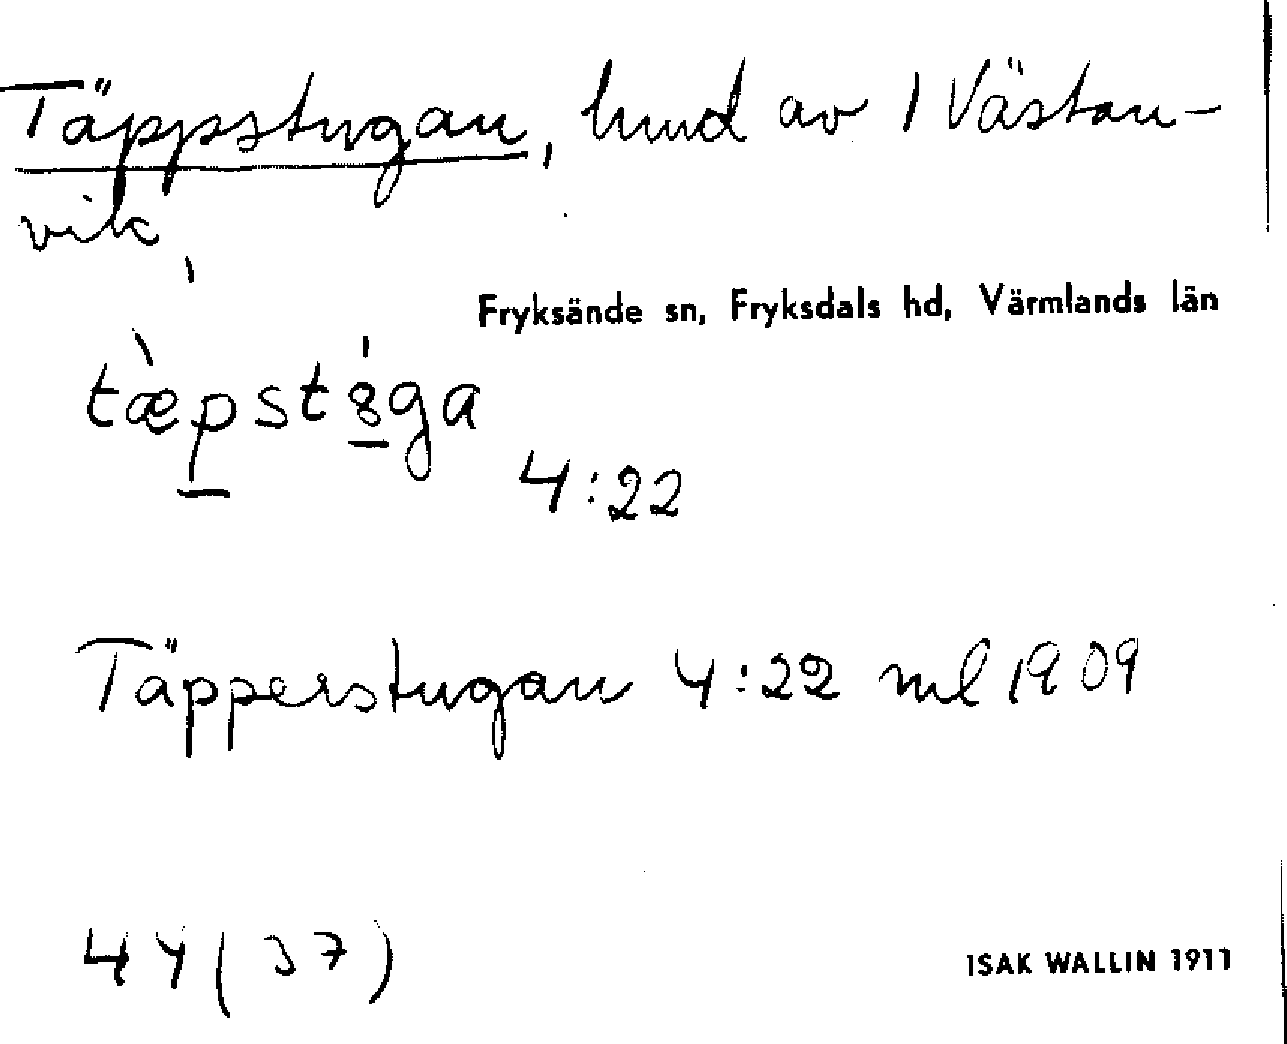 Täppstugan, hmd av 1 Västan-
vik
Fryksände sn, Fryksdals hd, Värmlands län
tæ̀pstȣ́ga
4:22
Täpperstugan 4:22 ml 1909
44 (37)
ISAK WALLIN 1911